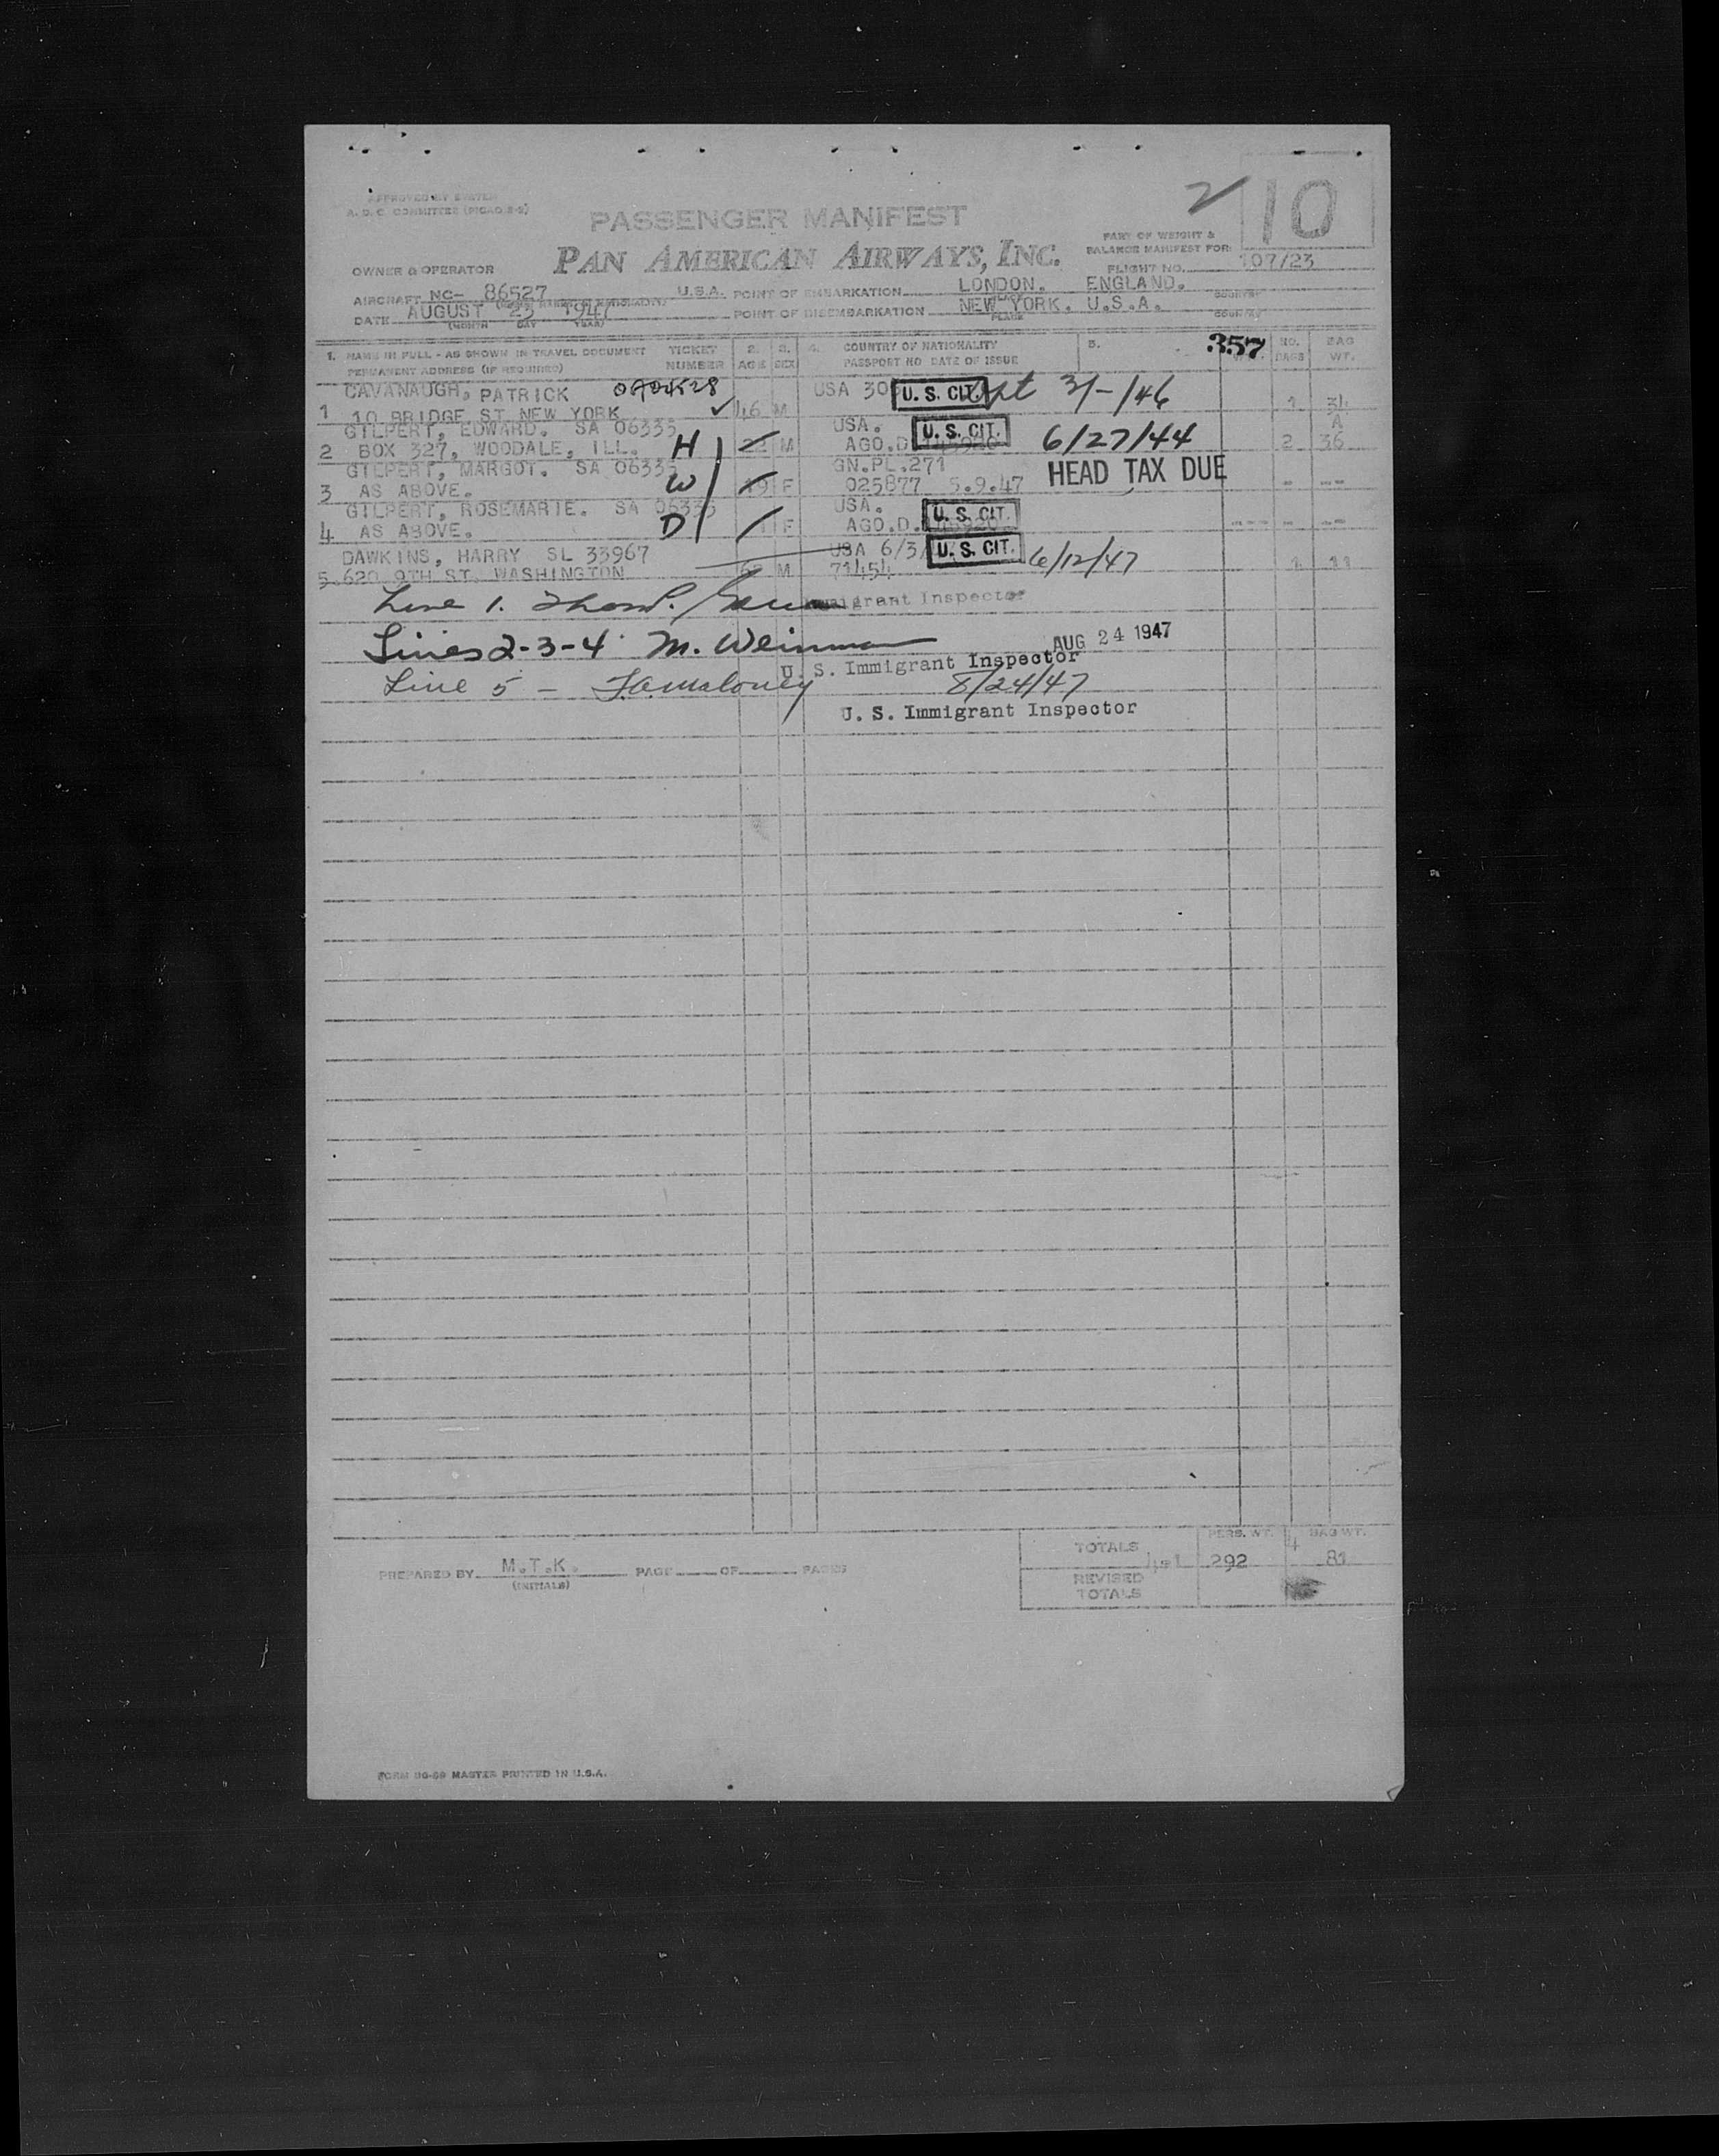 APPROVED BY
A. D. C. COMMITTEE
PASSENGER MANIFEST
2
10
PAN AMERICAN AIRWAYS, INC.
PART OF WEIGHT &
BALANCE MANIFEST FOR:
OWNER & OPERATOR
FLIGHT NO. 107/23
AIRCRAFT NC- 86527 U.S.A. POINT OF EMBARKATION LONDON. ENGLAND.
DATE AUGUST 23 1947 POINT OF DISEMBARKATION NEW YORK. U.S.A.
(MONTH DAY YEAR) PLACE COUNTRY
1. NAME IN FULL - AS SHOWN IN TRAVEL DOCUMENT TICKET 2. 3. 4. COUNTRY OF NATIONALITY 5. 357 NO. BAG
PERMANENT ADDRESS (IF REQUIRED) NUMBER AGE SEX PASSPORT NO DATE OF ISSUE BAGS WT.
CAVANAUGH, PATRICK USA U. S. CIT. 3/-/46
1 10 BRIDGE ST NEW YORK 46 M 1 34
GILPERT, EDWARD. SA 06335 USA. U. S. CIT. A
2 BOX 327, WOODALE, ILL. H M AGO.D. 6/27/44 2 36
GILPERT, MARGOT. SA 06335 GN.PL.271 HEAD TAX DUE
3 AS ABOVE. W 19 F 025877 5.9.47 - --
GILPERT, ROSEMARIE. SA 06335 USA. U. S. CIT.
4 AS ABOVE. D F AGO.D. - --
DAWKINS, HARRY SL 33967 USA 6/3/ U. S. CIT. 6/12/47
5 620 9TH ST. WASHINGTON M 71454 1 11
Line 1. Immigrant Inspector
Lines 2-3-4 M. Weinman AUG 24 1947
U. S. Immigrant Inspector
Line 5 - J.A. Maloney 8/24/47
U. S. Immigrant Inspector
PERS. WT. BAG WT.
TOTALS 292 4 81
PREPARED BY M.T.K. PAGE OF PAGES
(INITIALS)
REVISED
TOTALS
MASTER PRINTED IN U.S.A.